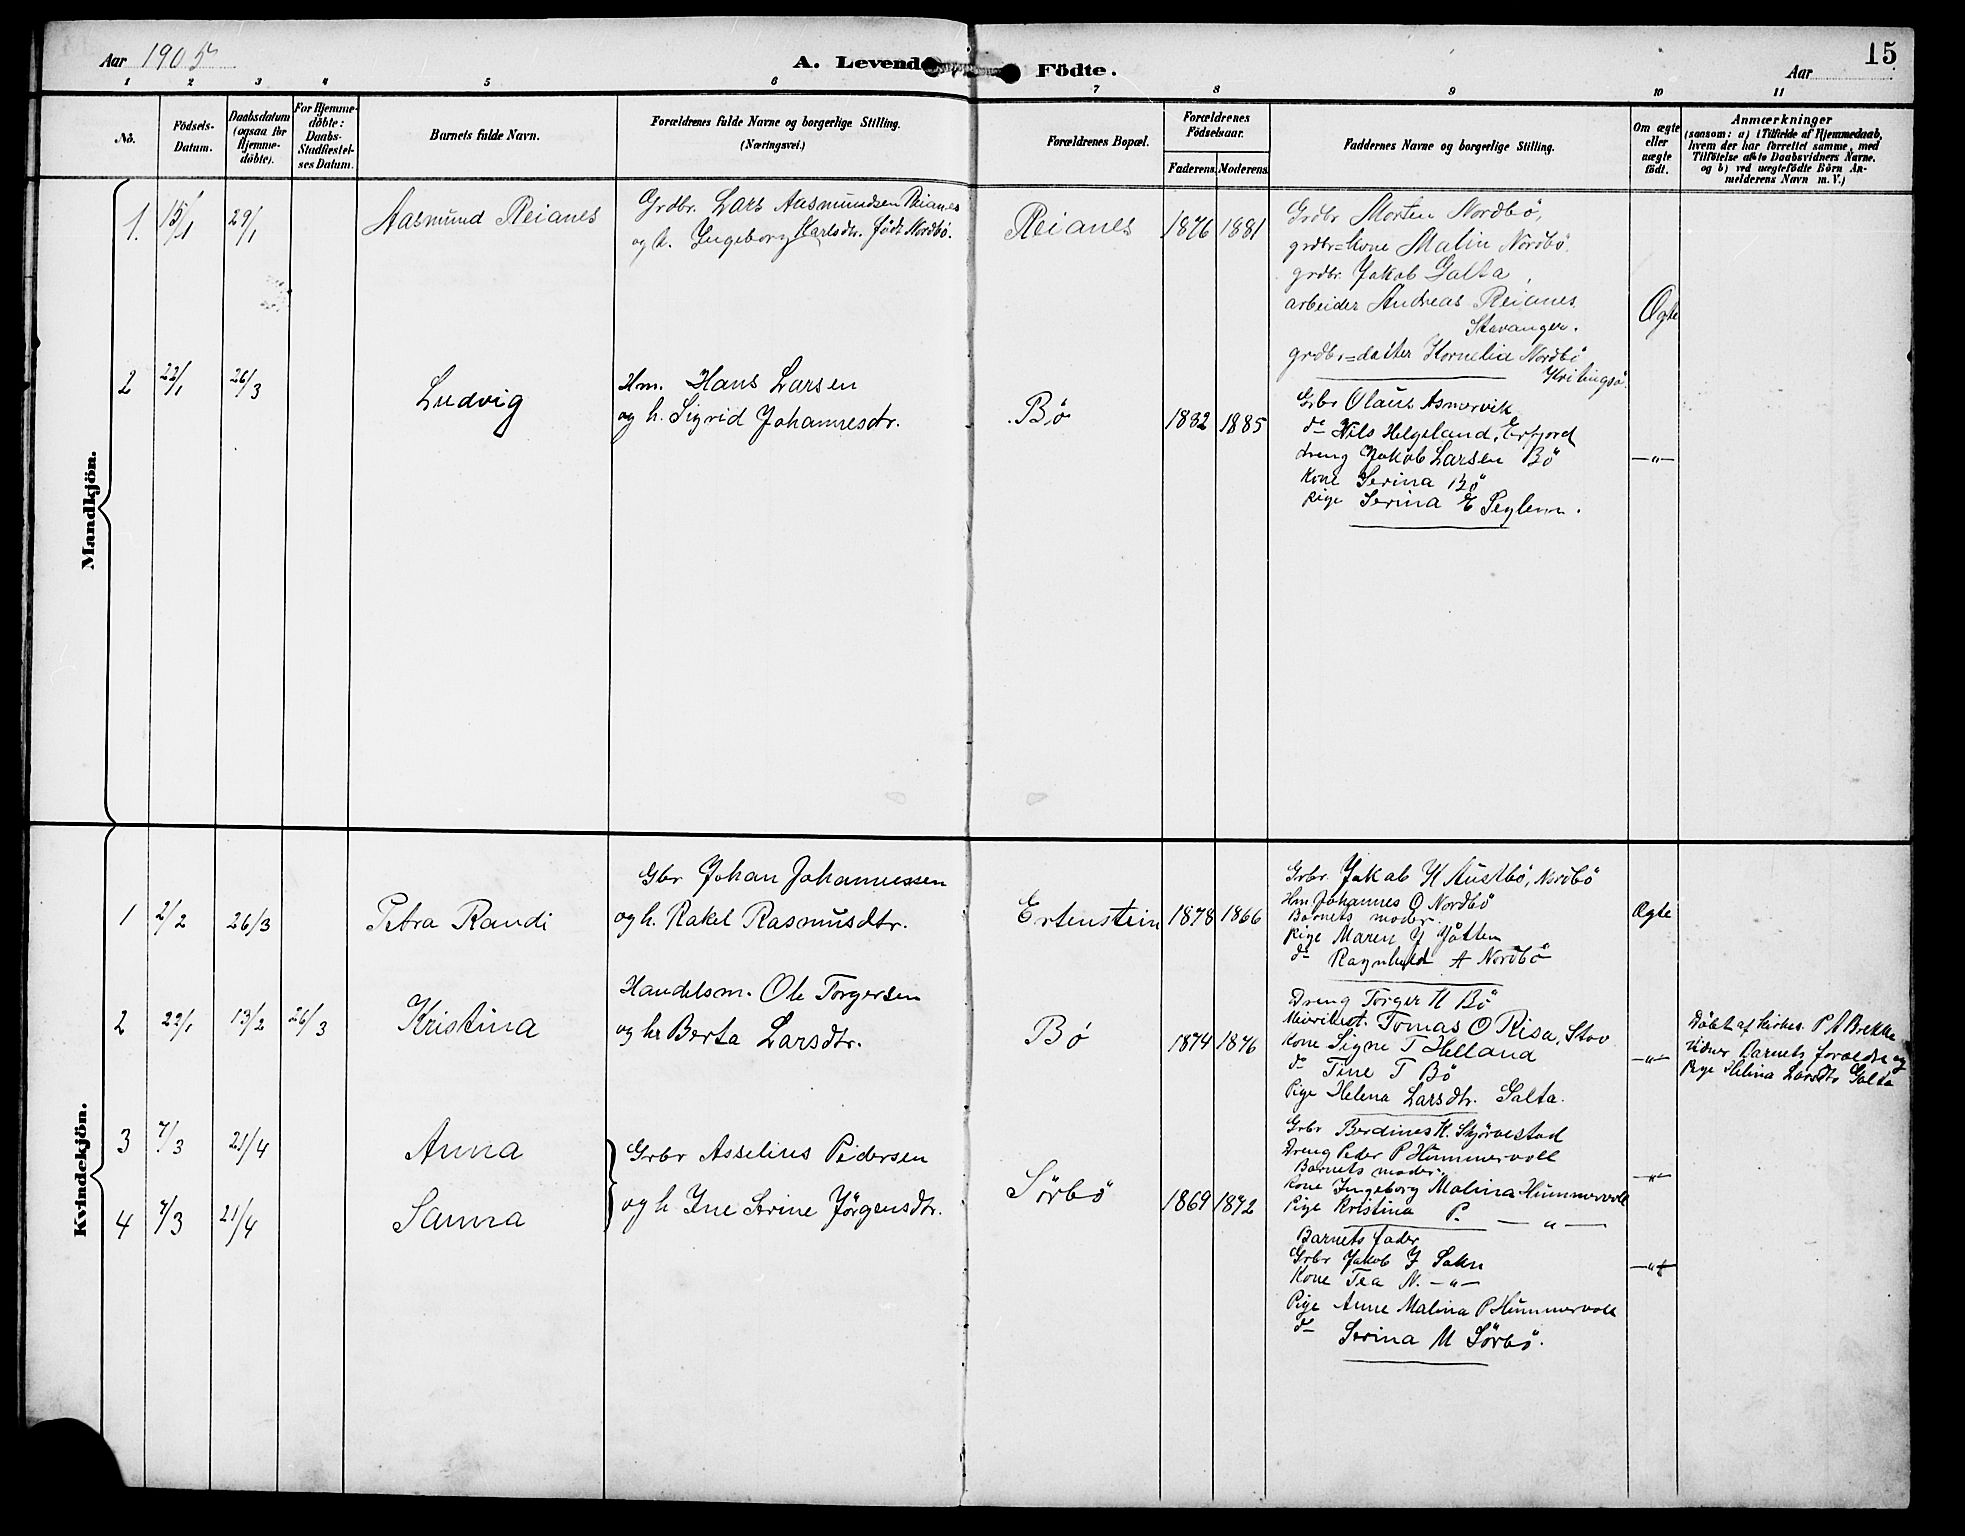 15
Aar 1905
A. Levende Födte.
Aar
1 2 3 4 5 6 7 8 9 10 11
No.
Födsels-Datum.
Daabsdatum (ogsaa for Hjemme-döbte).
For Hjemme-döbte: Daabs-Stadfæstel-ses Datum.
Barnets fulde Navn.
Forældrenes fulde Navne og borgerlige Stilling.
(Næringsvei.)
Forældrenes Bopæl.
Forældrenes Födselsaar.
Faderens. Moderens.
Faddernes Navne og borgerlige Stilling.
Om ægte eller uægte födt.
Anmærkninger
(saasom: a) i Tilfælde af Hjemmedaab,
hvem der har forrettet samme, med
Tilföielse af to Daabsvidners Navne.
og b) ved uægtefödte Börn An-
melderens Navn m. V.)
Mandkjön.
1. 15/1 29/1 Aasmund Reianes
Grdbr. Lars Aasmundsen Reianes
og h. Ingeborg Karlsdtr. född Nordbö.
Reianes 1876 1881
Grdbr Morten Nordbö,
grdbr=kone Malin Nordbö.
grdbr. Jakob Galta,
arbeider Andreas Reianes
Stavanger.
grdbr=datter Kornelia Nordbö
Ægte
2 22/1 26/3 Ludvig
Hm. Hans Larsen
og h. Sigrid Johannesdtr.
Bø 1882 1885
Grbr Olaus Asmervik
do Nils Helgeland, Erfjord
dreng Jakob Larsen Bö
Kone Serina Bö
Pige Serina E Seglem.
—"—
Kvindekjön.
1 2/2 26/3 Petra Randi
Gbr Johan Johannessen
og h. Rakel Rasmusdtr.
Ertenstein 1878 1866
Grbr. Jakob H Austbö, Nordbö
Hm Johannes O Nordbö
Barnets moder.
Pige Maren J Jåtten
do Ragnhild A Nordbö
Ægte
2 22/1 13/2 26/3 Kristina
Handelsm. Ole Torgersen
og h. Berta Larsdtr.
Bø 1874 1876
Dreng Torger H Bö
Tomas O Risa, Stav
Kone Signe T Helland
do Tine T Bö
Pige Helena Larsdtr. Galta.
—"—
Döbt af Kirkes. P A Brekke
Vidner Barnets forældre og
Pige Helina Larsdtr Galta
3 7/3 21/4 Anna
Grbr Asselius Pedersen
og h. Ine Serine Jörgensdtr.
Sørbø 1869 1872
4 7/3 21/4 Sanna
Grbr Berdines H. Skjörvestad
Dreng Peder P Hummervoll
Barnets moder.
Kone Ingeborg Malina Hummervoll
Pige Kristina P. —"—
—"—
Barnets fader
Grbr Jakob J Sokn
Kone Tea N. —"—
Pige Anne Malina P Hummervoll
do Serina M Sörbö.
—"—